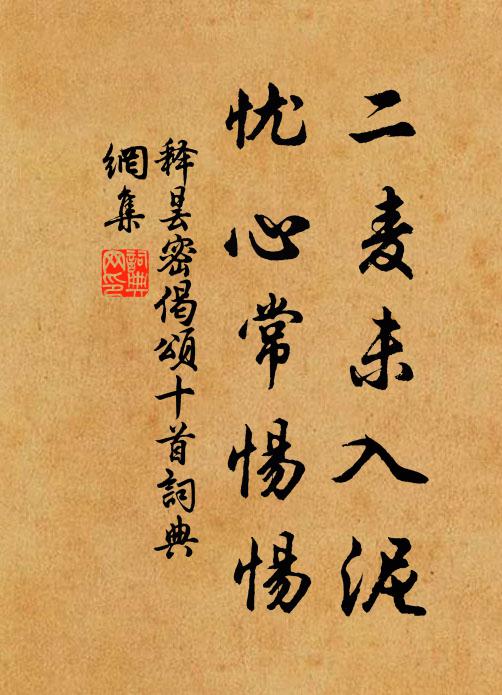 二麦未入泥
忧心常惕惕
释昙密偈颂十首詞典
網集
詞典
网印